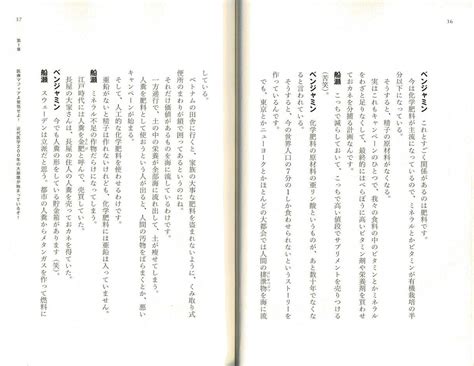 16
ベンジャミン　これとすごく関係があるのは肥料です。
今は化学肥料が主流になっているので、ミネラルとかビタミンが有機栽培の半
分以下になっています。
そうすると、精子の原材料がなくなる。
実はこれもキャンペーンのひとつで、我々の食料の中のビタミンとかミネラル
をわざと減らして、最終的にはべらぼうに高いビタミン剤や栄養剤を買わせ
ておカネを分捕る計画なんです。
船瀬　こっちで減らしておいて、こっちで高い値段でサプリメントを売りつける
（苦笑）。
ベンジャミン　化学肥料の原材料の亜リン酸というものが、あと数十年でなくな
ると言われている。
そうすると、今の世界人口の7分の1しか食わせられないというストーリーを
でも、東京とかニューヨークとかほとんどの大都会では人間の排泄物を海に流
17
第1章
医療マフィアが発狂せよ！
している。
ベトナムの田舎に行くと、家族の大事な肥料を盗まれないように、くみ取り式
便所のまわりが鎖で囲ってあるんです。
それだけ価値があるのに、その金を海に流しているわけです。
一方通行で、土の中の栄養が全部海に流れ出して、土が痩せてしまう。
人糞を肥料として使おうという人が出ると、人間の汚物をばらまくとか、悪い
キャンペーンが起きてしまう。
そして、人工的な化学肥料を使わせるわけです。
亜鉛がないと精子は作れないのに、化学肥料には亜鉛は入っていません。
船瀬　ミネラル不足の作物だらけになってしまう。
江戸時代には人糞を金肥と呼んで、売買していた。
長屋の大家さんは、長屋の住人の人糞を売っておカネを得ていた。
ベンジャミン　今でも人糞の形をしている貯金箱がありますが（笑）。
船瀬　スウェーデンは立派だと思う。都市の人糞からメタンガスを作って燃料に